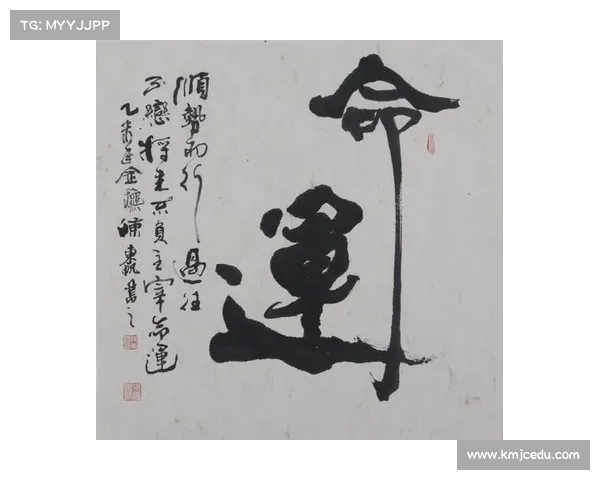 TG: MYYJJPP
命運
順勢而行過往
不戀將来不負主宰命運
乙未 書之
www.kmjcedu.com